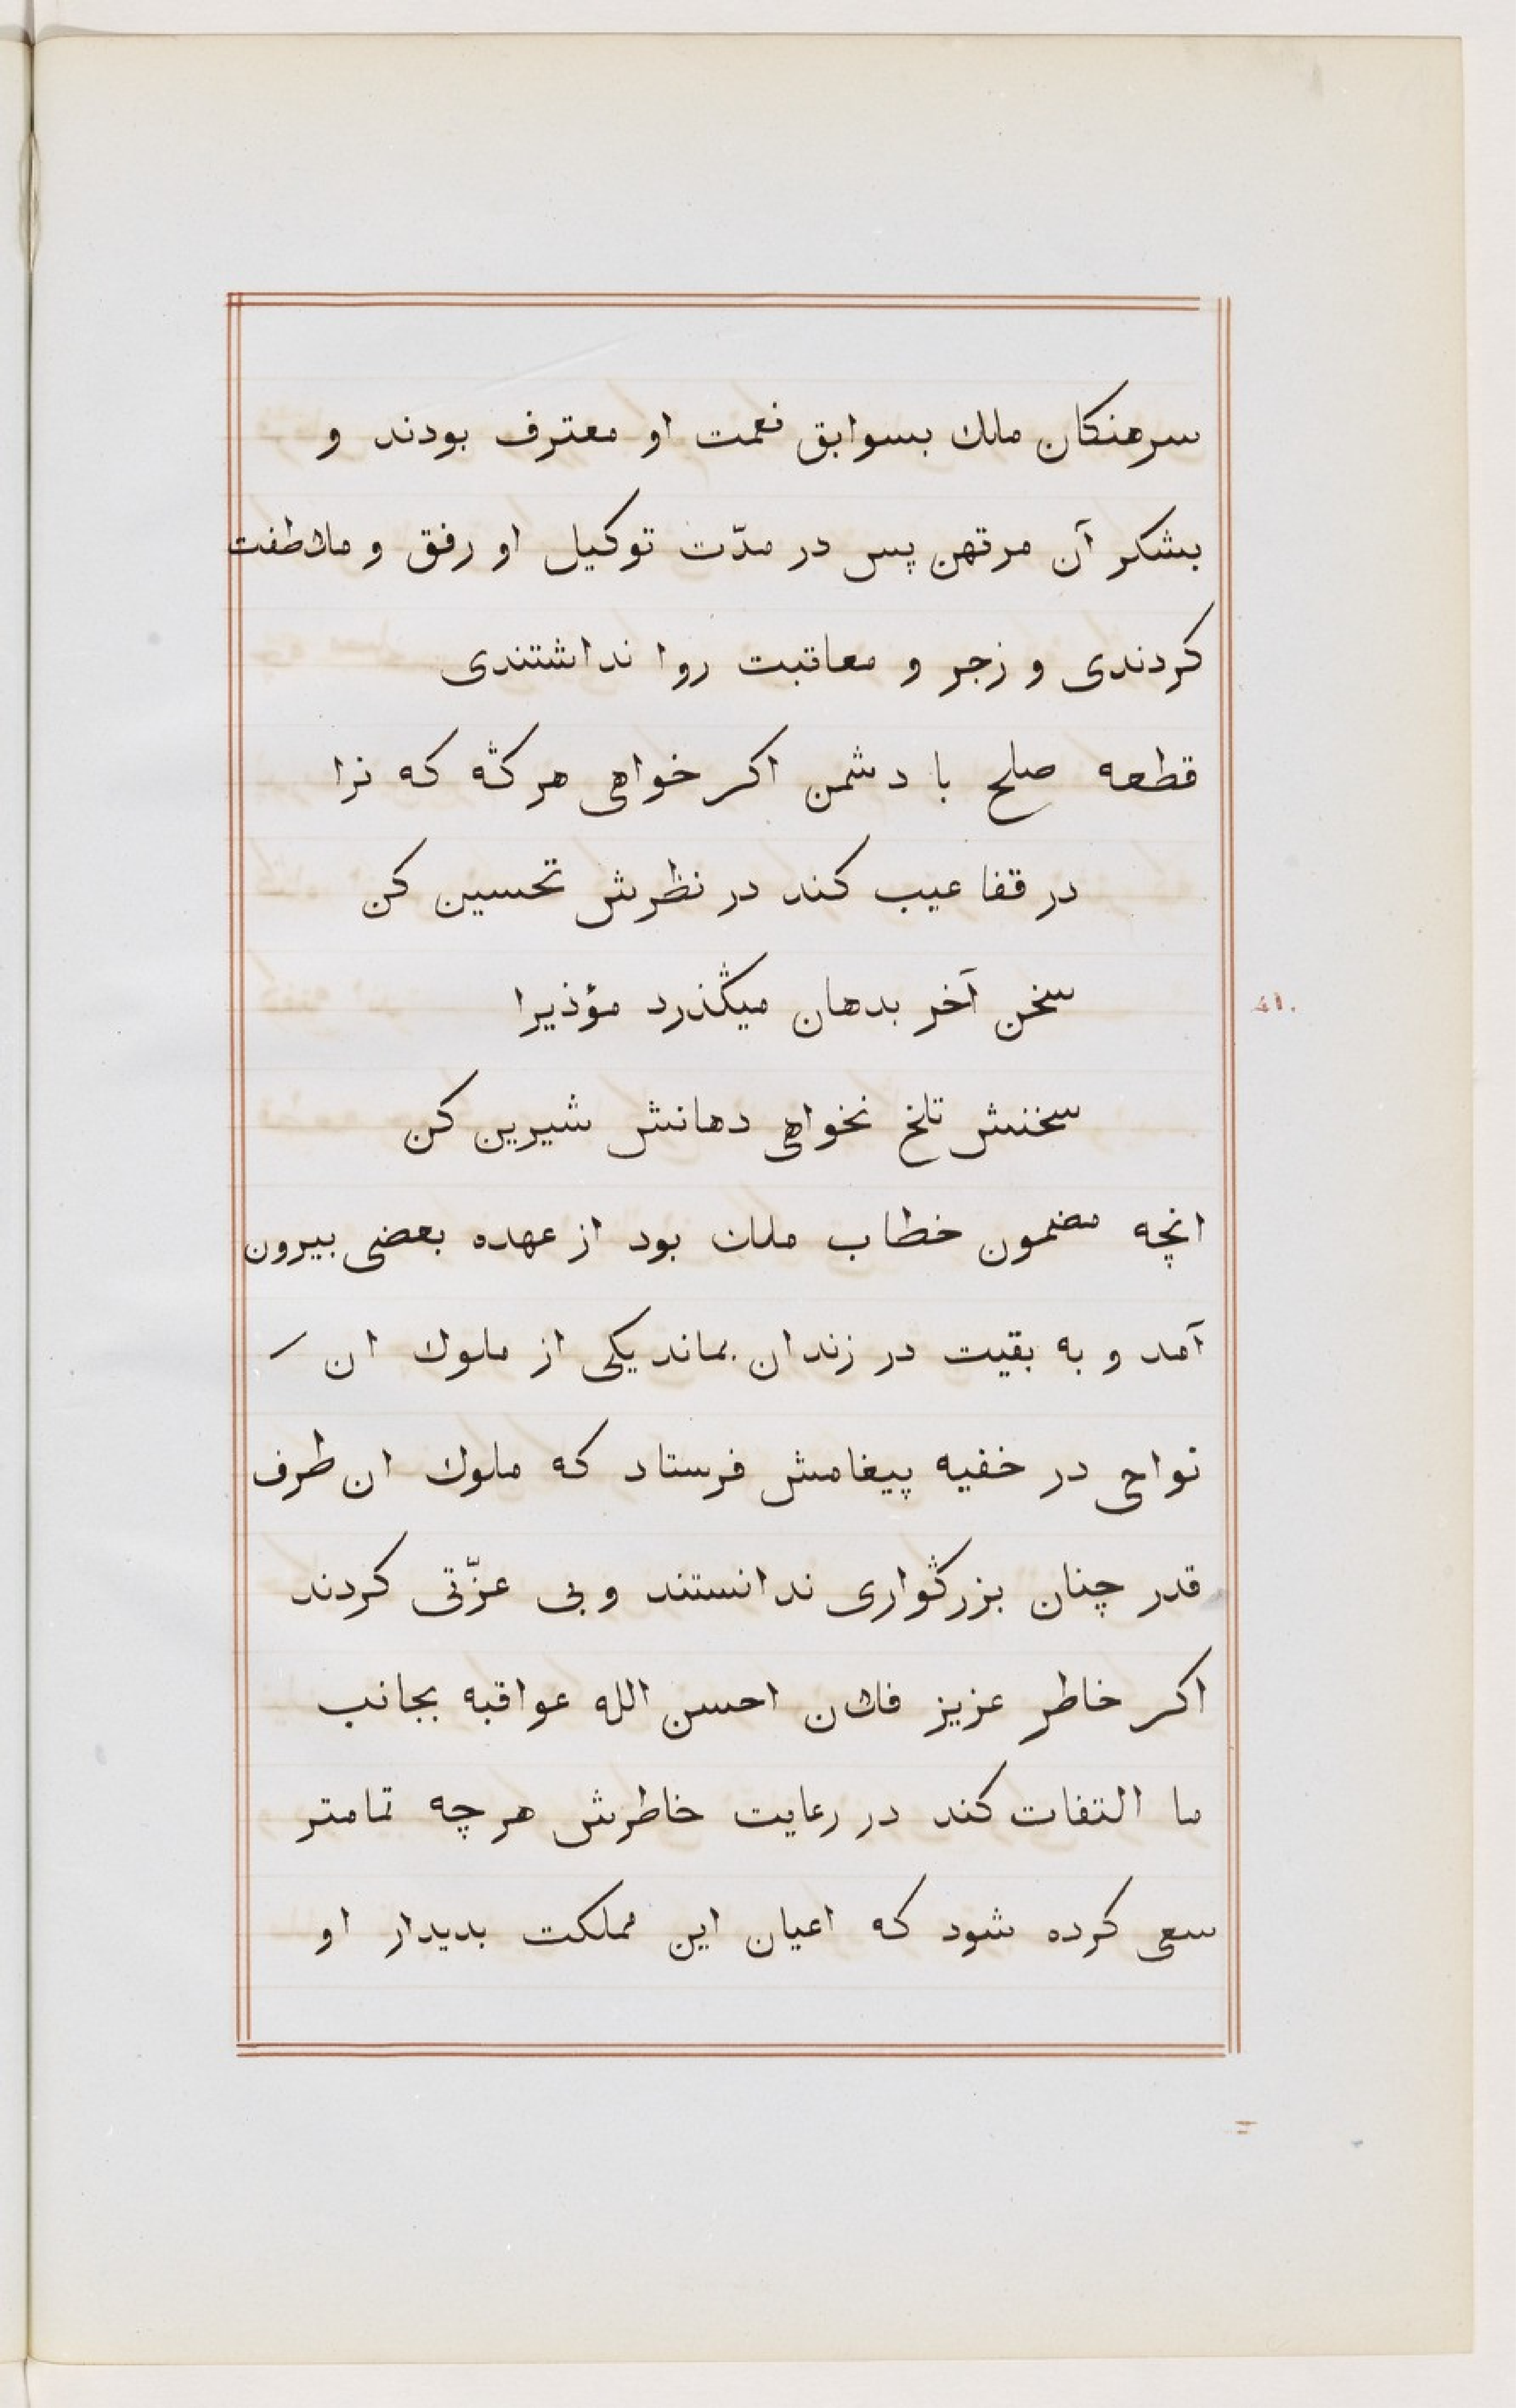 سرهنكان ملك بسوابق نعمت او معترف بودند و
بشكر آن مرتهن پس در مدّت توكيل او رفق و ملاطفت
كردندى و زجر و معاتبت روا نداشتندى
قطعه صلح با دشمن اكر خواهى هر كڭه كه ترا
در قفا عيب كند در نظرش تحسين كن
سخن آخر بدهان ميڭذرد مؤذيرا
سخنش تلخ نخواهى دهانش شيرين كن
انچه مضمون خطاب ملك بود از عهده بعضى بيرون
آمد و به بقيت در زندان بماند يكى از ملوك ان
نواحى در خفيه پيغامش فرستاد كه ملوك ان طرف
قدر چنان بزرڭوارى ندانستند و بى عزّتى كردند
اكر خاطر عزيز فلان احسن الله عواقبه بجانب
ما التفات كند در رعايت خاطرش هر چه تمامتر
سعى كرده شود كه اعيان اين مملكت بديدار او